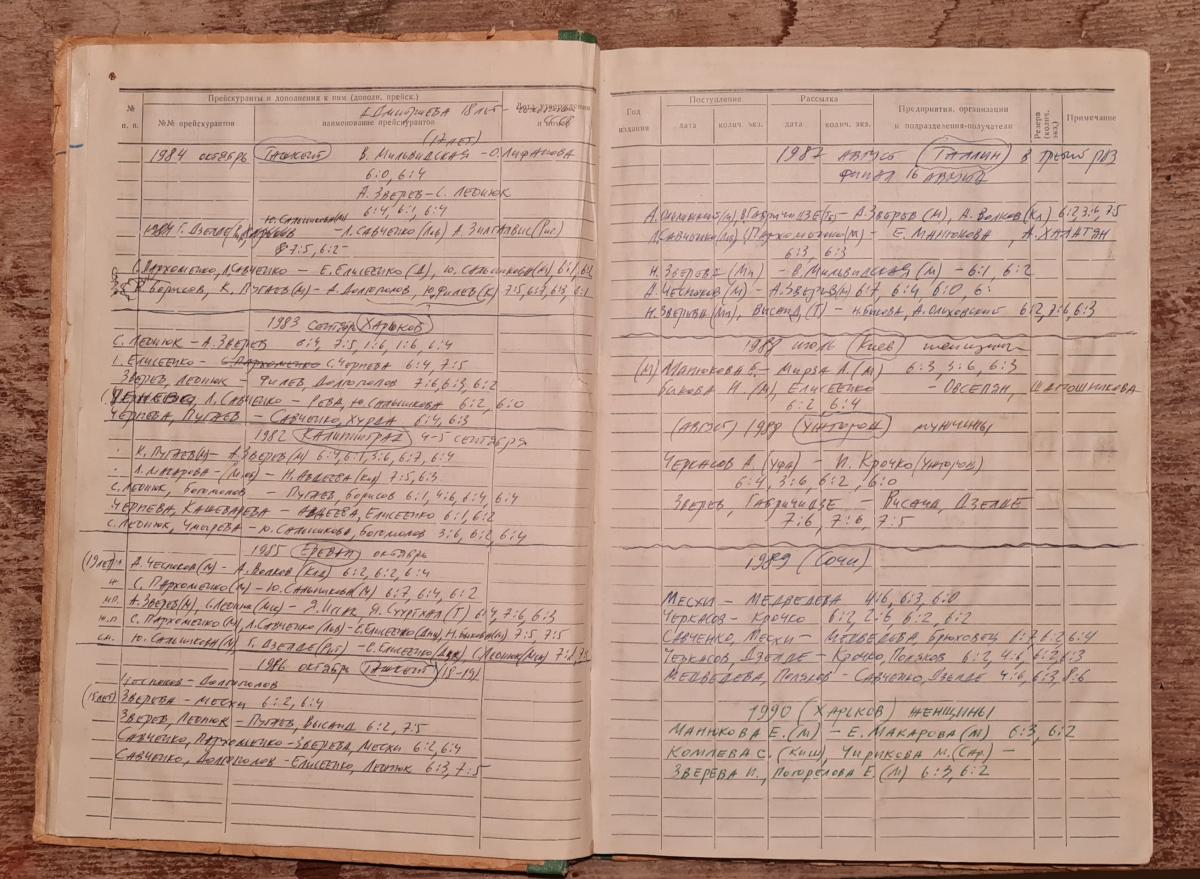 Прейскуранты и дополнения к ним (дополн. прейск.)
№ п. п.
№№ прейскурантов
наименование прейскуранта
Дмитриева 18 лет
(17 лет)
1984 октябрь Ташкент В. Мильвидская - О. Лифанова
6:0, 6:4
А. Зверев - С. Леонюк
6:4, 6:1, 6:4
Ю. Сальникова (М)
1984 Г. Дзелде - Л. Савченко (Льв) А. Зилгалвис (Риг)
7:5, 6:2
Пархоменко, Л. Савченко - Е. Елисеенко (Д), Ю. Сальникова (М) 6:1, 6:2
Борисов, К. Пугаев (М) - А. Долгополов, Ю. Филев (К) 7:5, 6:7, 6:3, 6:1
1983 сентябрь Харьков
С. Леонюк - А. Зверев 6:4, 7:5, 1:6, 1:6, 6:4
Елисеенко - Пархоменко С. Чернева 6:4, 7:5
Зверев, Леонюк - Филев, Долгополов 7:6, 6:3, 6:2
Л. Савченко - Рева, Ю. Сальникова 6:2, 6:0
Чернева, Пугаев - Савченко, Хурда 6:4, 6:3
1982 Калининград 4-5 сентября
К. Пугаев (М) - А. Зверев (М) 6:4, 6:7, 3:6, 6:7, 6:4
Л. Макарова - Н. Авдеева 7:5, 6:3
С. Леонюк, Богомолов - Пугаев, Борисов 6:1, 4:6, 6:4, 6:4
Чернева, Кашеварова - Авдеева, Елисеенко 6:1, 6:2
С. Леонюк, Чмырева - Ю. Сальникова, Богомолов 3:6, 6:2, 6:4
1985 Ереван октябрь
(19 лет) А. Чесноков (М) - А. Волков (Клд) 6:2, 6:2, 6:4
С. Пархоменко (М) - Ю. Сальникова (М) 6:7, 6:4, 6:2
М.П. А. Зверев (М), С. Леонюк (Мск) - Я. (Т) 6:4, 7:6, 6:3
Ж.П С. Пархоменко (М), Л. Савченко (Льв) - С. Елисеенко (Дпр), Н. Быкова (М) 7:5, 7:5
СМ. Ю. Сальникова (М) Г. Дзелде (Риг) - С. Елисеенко С. Леонюк (Мск)
1986 октябрь Ташкент (18-19)
Чесноков - Долгополов
(15 лет) Зверева - Месхи 6:2, 6:4
Зверев, Леонюк - Пугаев, Высанд 6:2, 7:5
Савченко, Пархоменко - Зверева, Месхи 6:2, 6:4
Савченко, Долгополов - Елисеенко, Леонюк 6:3, 7:5
Год издания
Поступление
дата
колич. экз.
Рассылка
дата
колич. экз.
Предприятия, организации и подразделения-получатели
Резерв (колич. экз.)
Примечание
1987 август Таллин в третий раз
финал 16 августа
А. Ольховский (М), В. Габричидзе (Тб) - А. Зверев (М), А. Волков (Кл) 6:2, 3:4, 7:5
Л. Савченко (Льв) (Пархоменко (М) - Е. Манюкова, А. Халатян
6:3, 6:3
Н. Зверева (Мн) - В. Мильвидская (М) - 6:1, 6:2
А. Чесноков (М) - А. Зверев (М) 6:7, 6:4, 6:0, 6:
Н. Зверева (Мн), Висанд (Т) - Н. Быкова, А. Ольховский 6:2, 7:6, 6:3
1988 июль Киев женщины
(М) Манюкова Е. - Мирза Л. (М) 6:3 3:6, 6:3
Быкова Н. (М), Елисеенко - Овсепян, Шапошникова
6:2 6:4
(Август) 1988 Ужгород мужчины
Черкасов А. (Уфа) - И. Крочко (Ужгород)
6:4, 3:6, 6:2, 6:0
Зверев, Габричидзе - Висанд, Дзелде
7:6, 7:6, 7:5
1989 (Сочи)
Месхи - Медведева 4:6, 6:3, 6:0
Черкасов - Крочко 6:2, 2:6, 6:2, 6:2
Савченко, Месхи - Медведева, Брюховец 6:7, 6:2, 6:4
Черкасов, Дзелде - Крочко, Поляков 6:2, 4:6, 6:2, 6:3
Медведева, Поляков - Савченко, Дзелде 4:6, 6:3, 8:6
1990 (Харьков) женщины
Манюкова Е. (М) - Е. Макарова (М) 6:3, 6:2
Комлева С. (Киш), Чирикова М. (Сар.) -
Зверева И., Погорелова Е. (М) 6:3, 6:2